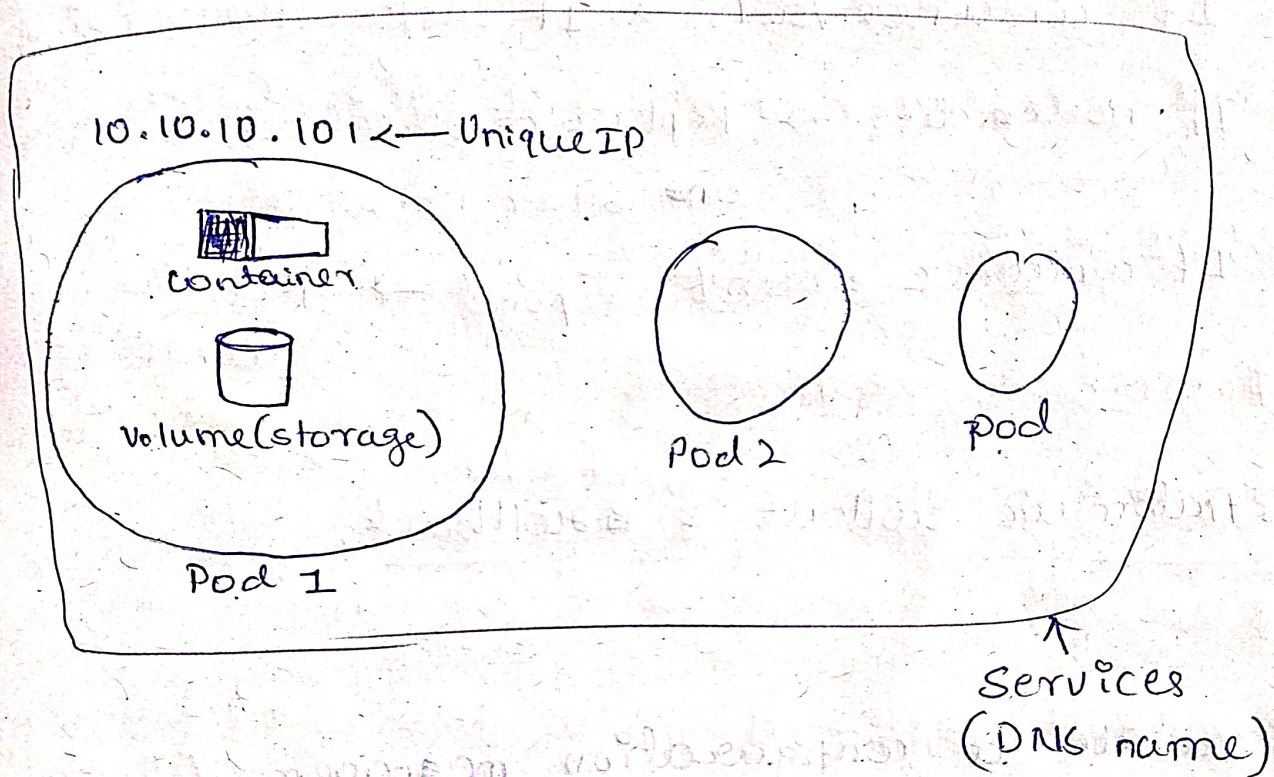 10.10.10.101 <— Unique IP
container
volume(storage)
Pod 1
Pod 2
pod
Services
(DNS name)